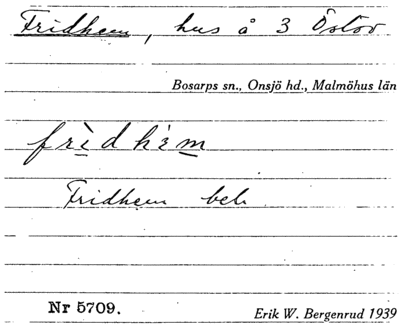 Fridhem, hus å 3 Östov
Bosarps sn., Onsjö hd., Malmöhus län
frìdhe᷄m
Fridhem beb.
Nr 5709.
Erik W. Bergenrud 1939